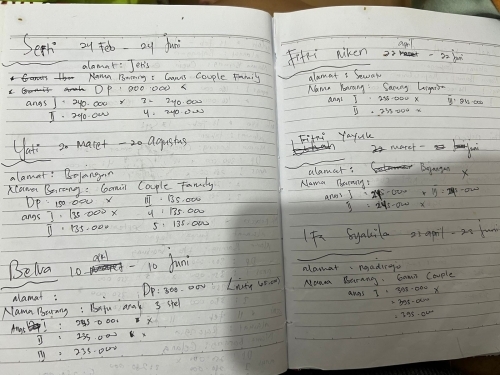 Septi 24 Feb - 24 Juni
alamat : Jetis
Nama Barang : Gamis Couple Family
DP : 200.000 x
angs I : 240.000 x 3 : 240.000
II : 240.000 4 : 240.000
Yati 20 Maret - 20 Agustus
alamat : Bojongan
Nama Barang : Gamis Couple Family
DP : 150.000 x III : 135.000
angs I : 135.000 x 4 : 135.000
II : 135.000 5 : 135.000
Belva 10 april - 10 Juni
alamat : DP : 300.000
Nama Barang : Baju anak 3 stel
Angs I : 235.000 x
II : 235.000 x
III : 235.000
Fitri Niken 22 april - 22 Juni
alamat : Sewan
Nama Barang : Sarung
angs I : 235.000 x
II : 235.000 x
Fitri Yayuk 22 maret - Juni
alamat : Bojongan x
Nama Barang :
angs I
II
Ifa Syakila 21 april - 23 Juni
alamat : ngadirojo
Nama Barang : Gamis Couple
angs I : 395.000
: 395.000
: 395.000